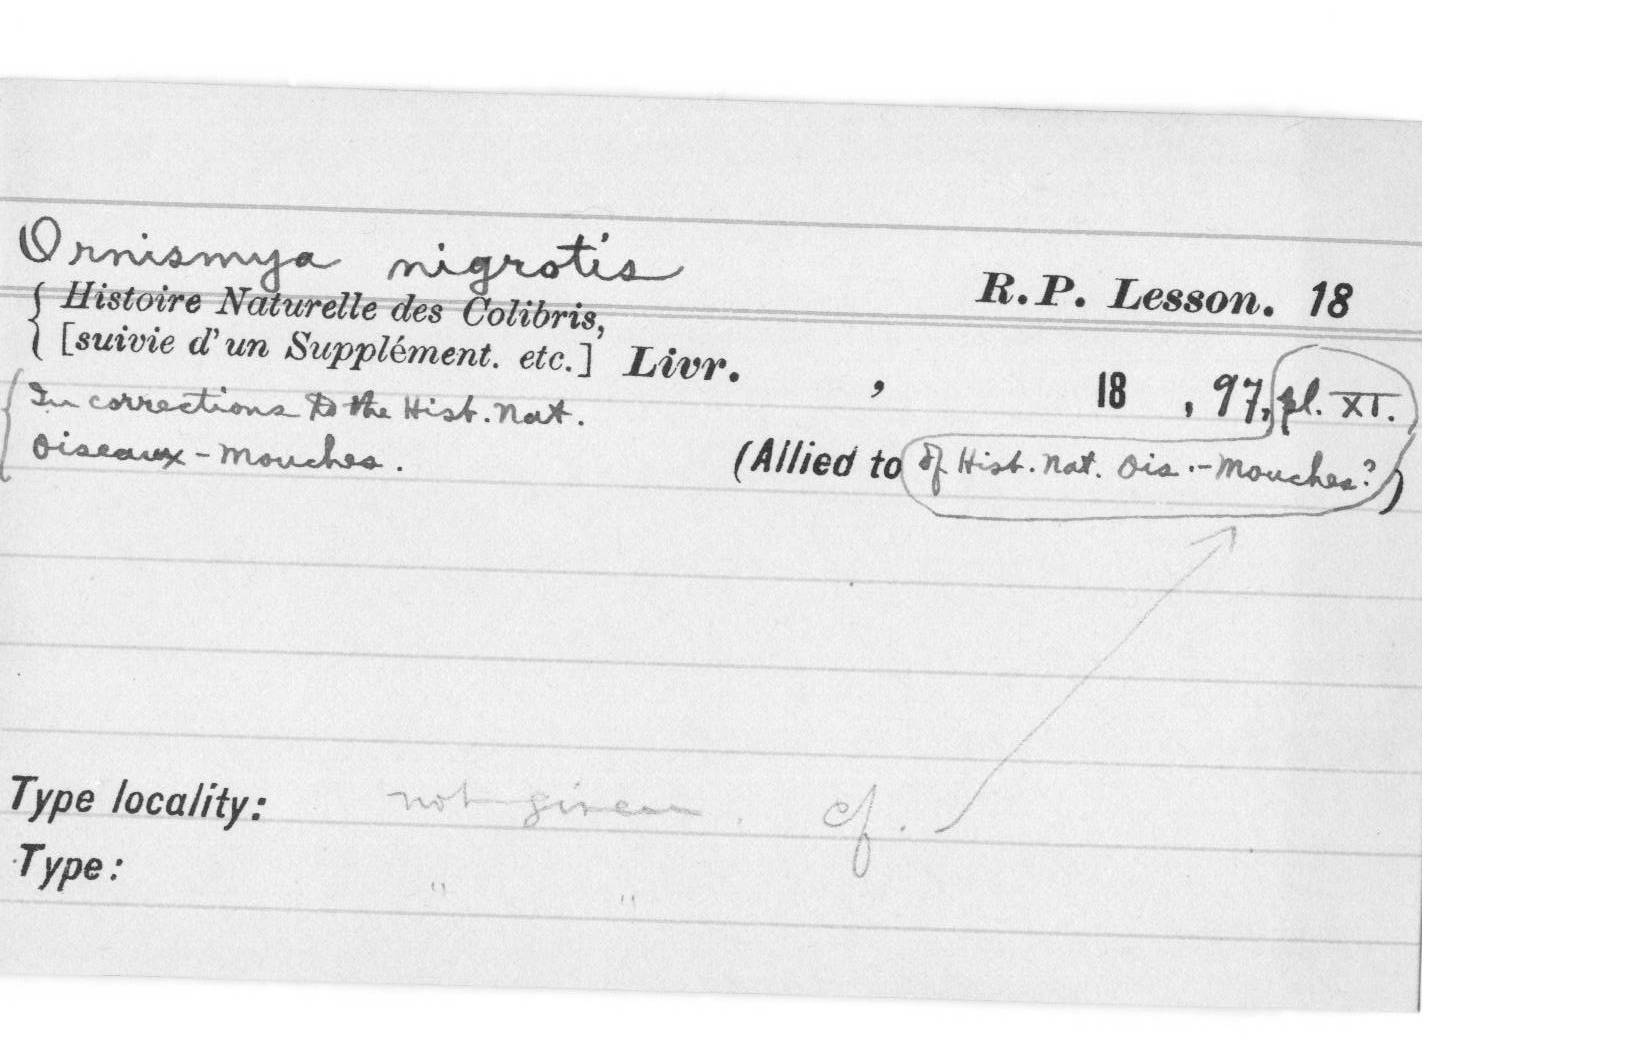 Ornismya nigrotis
R.P. Lesson. 18
{ Histoire Naturelle des Colibris,
[suivie d'un Supplément. etc.] Livr. , 18 , 97, pl. XI.
{ In corrections to the Hist. Nat.
Oiseaux-Mouches.
(Allied to of Hist. Nat. Ois.-Mouches?)
Type locality: not given. cf.
Type: " "